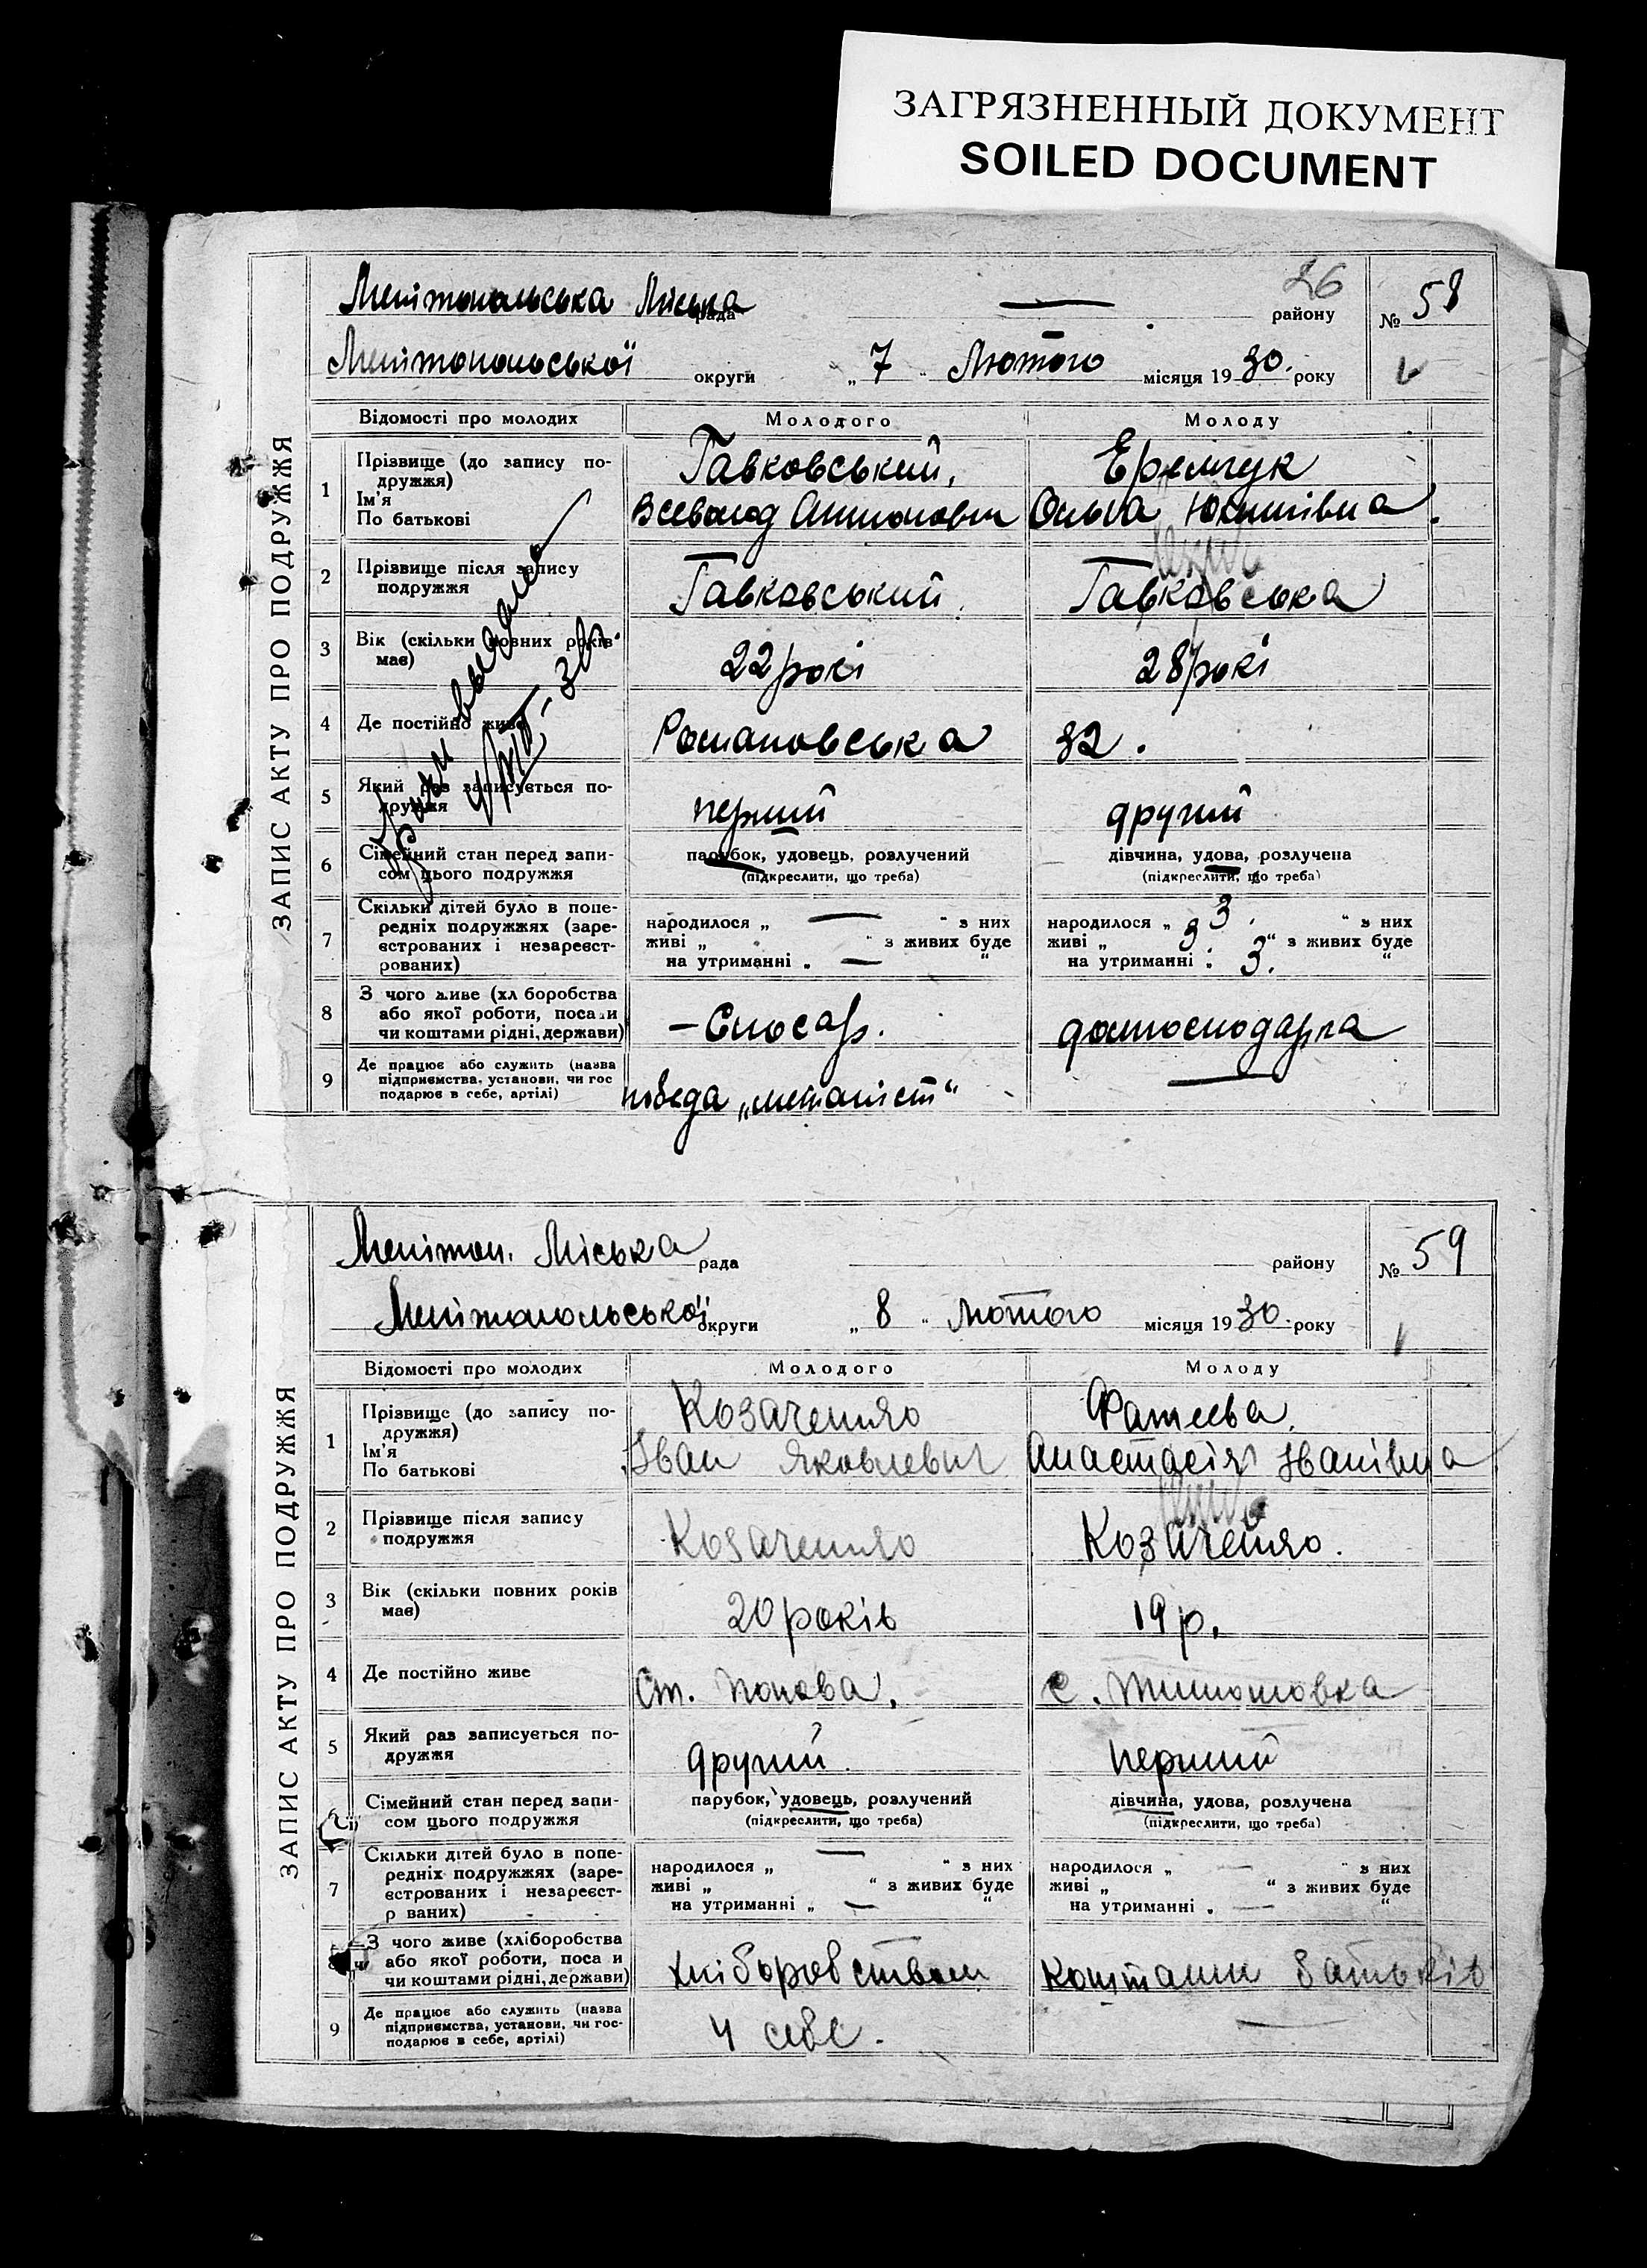 ЗАГРЯЗНЕННЫЙ ДОКУМЕНТ
SOILED DOCUMENT
26
ЗАПИС АКТУ ПРО ПОДРУЖЖЯ
Мелітопольська Міська рада — району № 58
Мелітопольської округи „ 7 “ Лютого місяця 1930. року
Відомості про молодих Молодого Молоду
1 Прізвище (до запису по-
дружжя)
Ім'я
По батькові
Гавковський,
Всеволод Антонович
Еремчук
Ольга Юхимівна.
2 Прізвище після запису
подружжя
Гавковський
Гавковська
3 Вік (скільки повних років
має)
22 рокі
28 рокі
4 Де постійно живе
Романовська 32.
5 Який раз записується по-
дружжя
перший
другий
6 Сімейний стан перед запи-
сом цього подружжя
парубок, удовець, розлучений
(підкреслити, що треба)
дівчина, удова, розлучена
(підкреслити, що треба)
7 Скільки дітей було в попе-
редніх подружжях (заре-
єстрованих і незареєст-
рованих)
народилося „ — “ з них
живі „ “ з живих буде
на утриманні „ — “
народилося „ 3. “ з них
живі „ 3 “ з живих буде
на утриманні „ 3. “
8 З чого живе (хл боробства
або якої роботи, посади
чи коштами рідні, держави)
— Слюсар.
домогосподарка
9 Де працює або служить (назва
підприємства, установи, чи гос
подарює в себе, артілі)
победа „металіст“
—
ЗАПИС АКТУ ПРО ПОДРУЖЖЯ
Мелітоп. Міська рада району № 59
Мелітопольської округи „ 8 “ Лютого місяця 1930. року
Відомості про молодих Молодого Молоду
1 Прізвище (до запису по-
дружжя)
Ім'я
По батькові
Козаченко
Іван Яковлевич
Фатеева.
Анастасія Іванівна
2 Прізвище після запису
подружжя
Козаченко
Козаченко.
3 Вік (скільки повних років
має)
20 років
19 р.
4 Де постійно живе
Ст. Попова.
с. Тимошовка
5 Який раз записується по-
дружжя
другий
перший
Сімейний стан перед запи-
сом цього подружжя
парубок, удовець, розлучений
(підкреслити, що треба)
дівчина, удова, розлучена
(підкреслити, що треба)
7 Скільки дітей було в попе-
редніх подружжях (заре-
єстрованих і незареєст-
р ваних)
народилося „ — “ з них
живі „ “ з живих буде
на утриманні „ — “
народилося „ — “ з них
живі „ “ з живих буде
на утриманні „ — “
З чого живе (хліборобства
або якої роботи, поса и
чи коштами рідні, держави)
хліборобством
коштами батьків
9 Де працює або служить (назва
підприємства, установи, чи гос-
подарює в себе, артілі)
У себе.
—